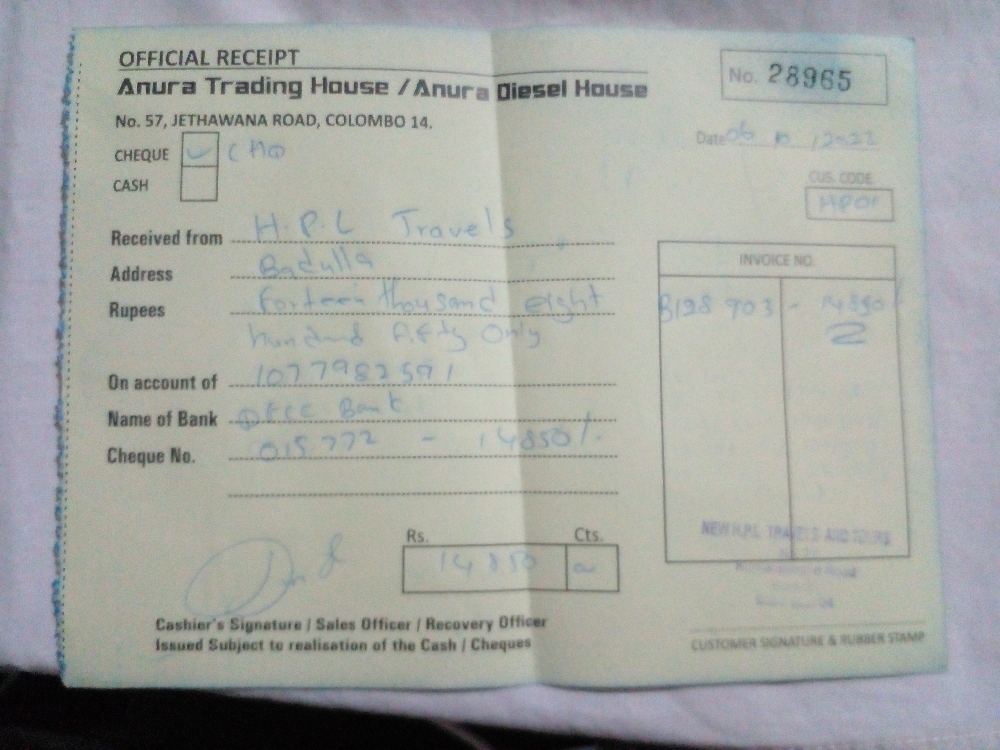 OFFICIAL RECEIPT
Anura Trading House / Anura Diesel House
No. 28965
No. 57, JETHAWANA ROAD, COLOMBO 14.
Date 06 10 / 2022
CHEQUE CHQ
CASH
CUS. CODE
HP01
Received from H.P.L Travels
Address Badulla
Rupees Forteen thousand eight
hundred fifty Only
INVOICE NO.
B128903 - 14850/
On account of 1077982591
Name of Bank DFCC Bank
Cheque No. 015772 - 14850/-
Rs. Cts.
14850
NEW H.P.L. TRAVELS AND TOURS
Road
Cashier's Signature / Sales Officer / Recovery Officer
Issued Subject to realisation of the Cash / Cheques
CUSTOMER SIGNATURE & RUBBER STAMP